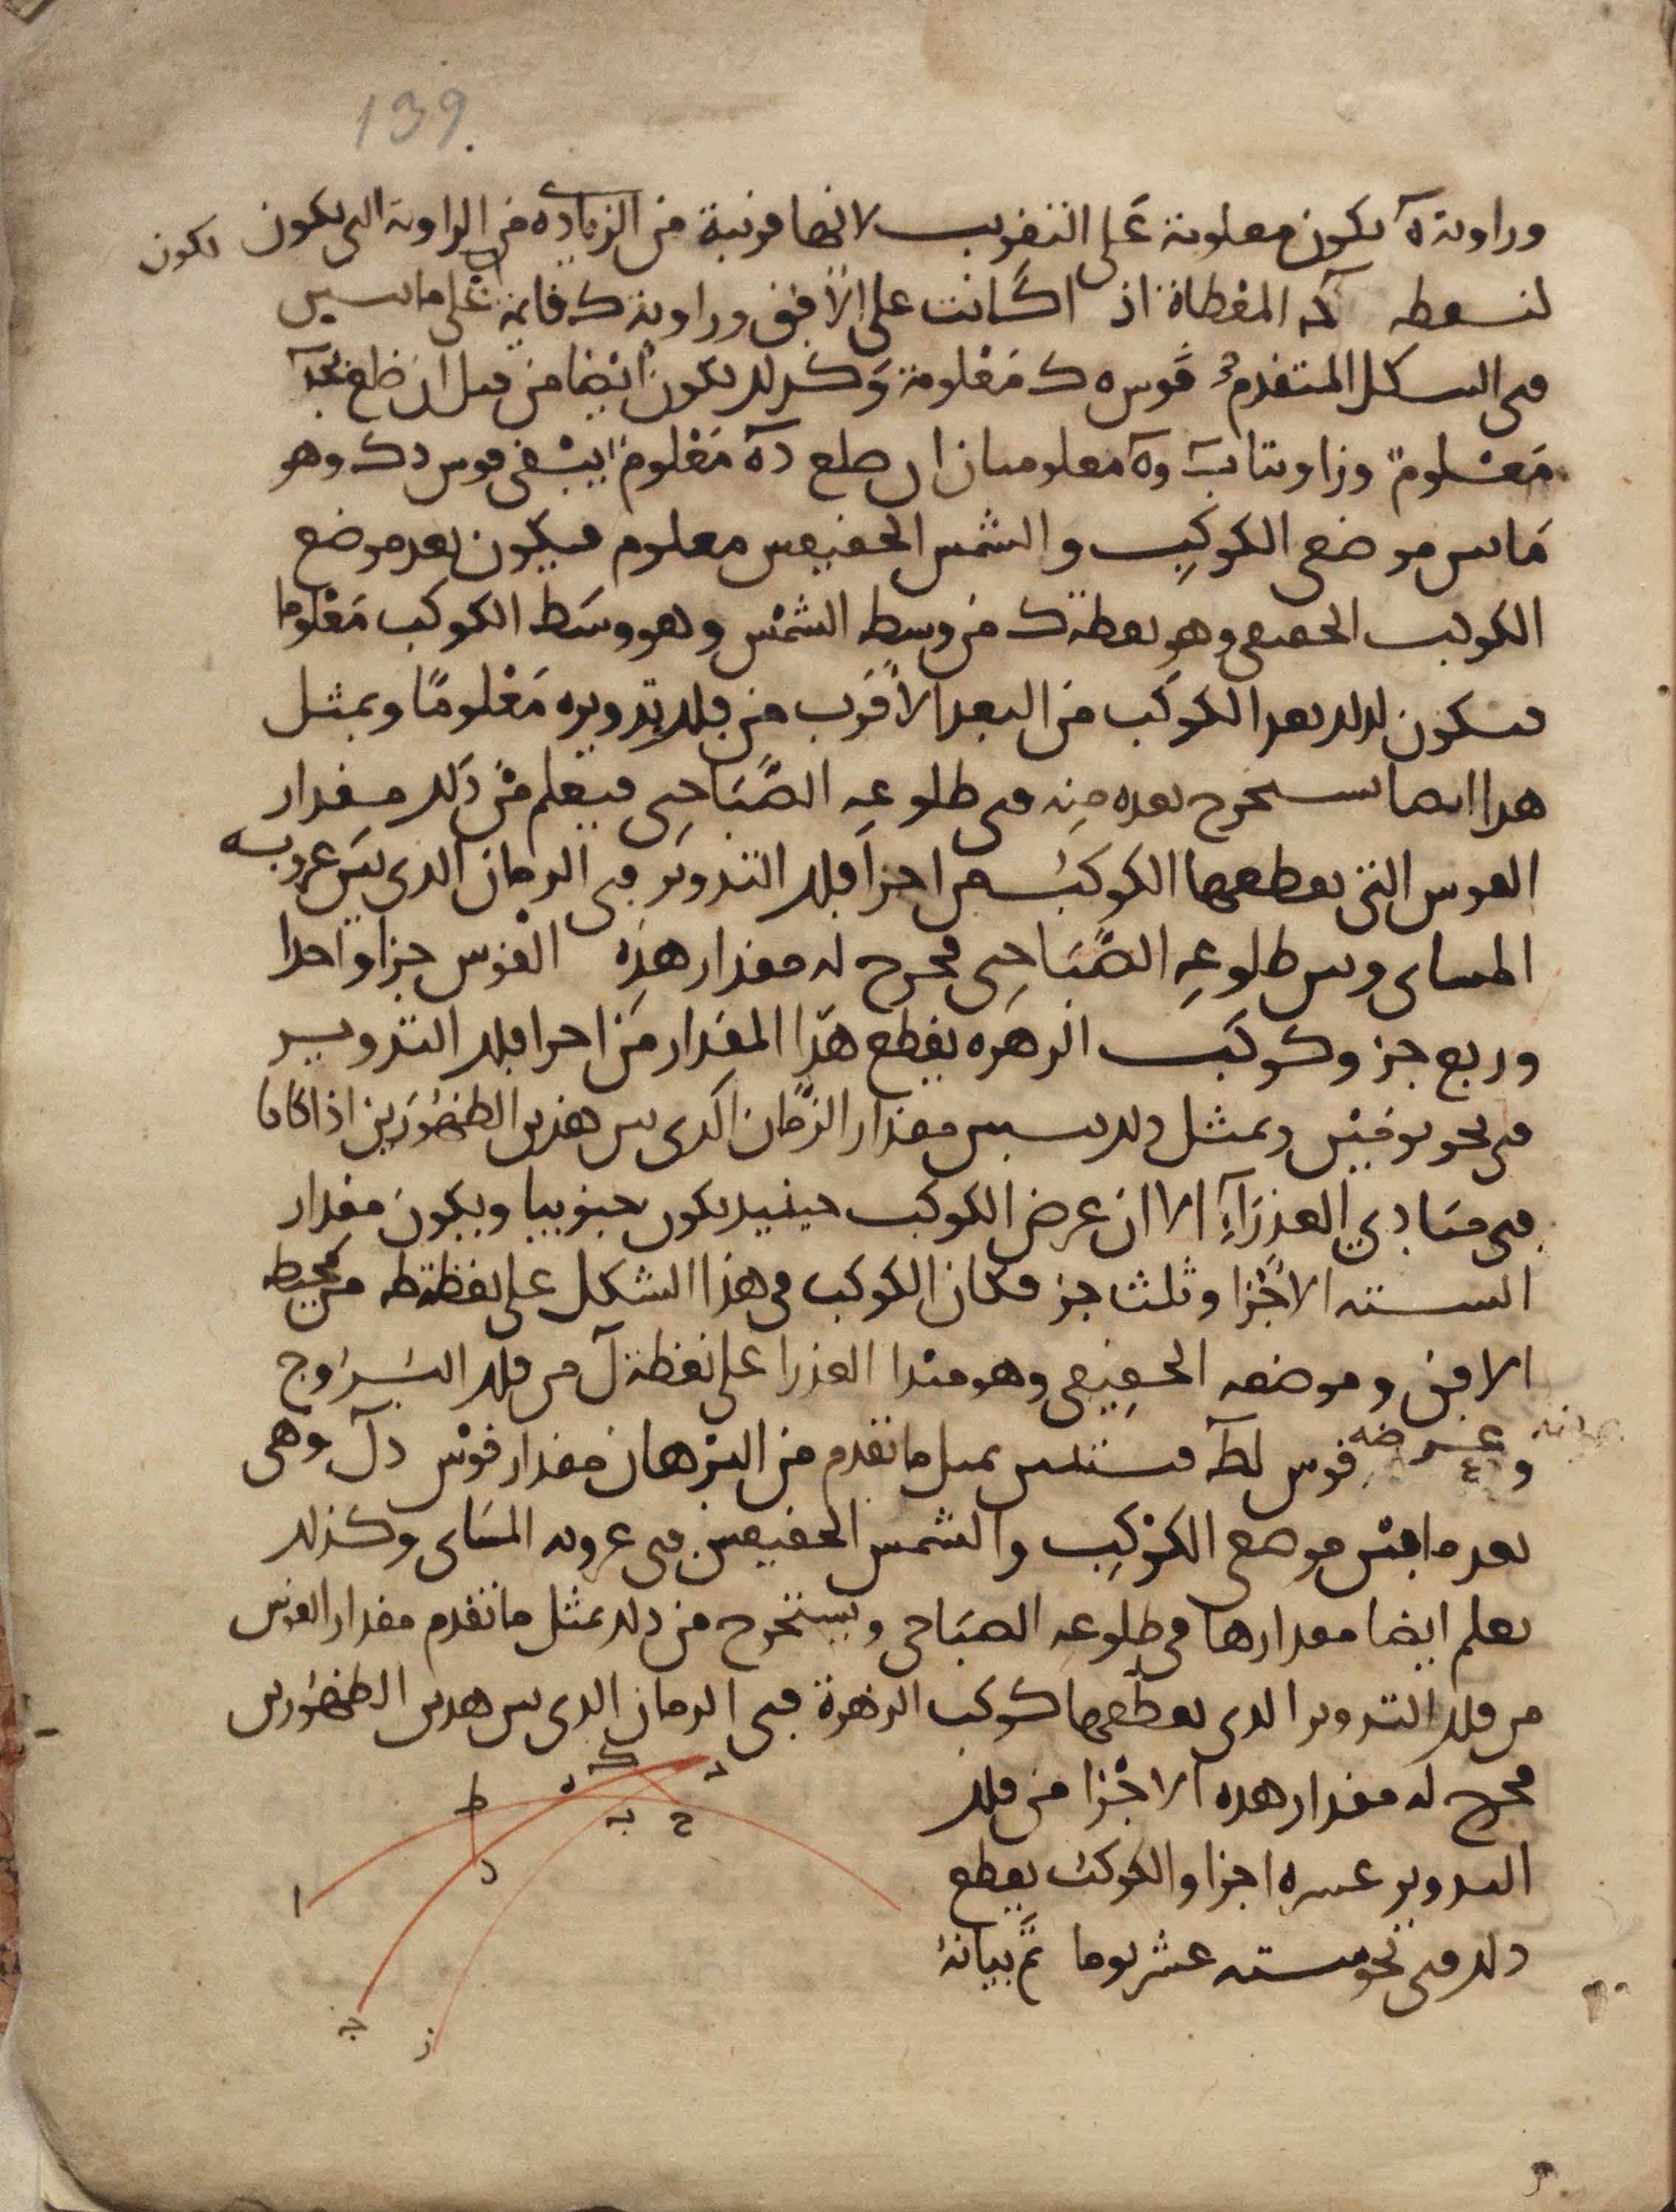 139.
وزاوية ه تكون معلومة على التقريب لانها قريبة من الزيادة من الزاوية التي يكون تكون
لنقطه المعطاة اذ اكانت على الافق وزاوية ك قايمة على ما تبين
في الشكل المتقدم قوس ه ك معلومة وكذلك يكون ايضا من قبل ان ضلع
معلوم وزاويتا ب و ه معلومتان ان ضلع د ه معلوم يبقى قوس د ك وهو
ما بين موضعي الكوكب والشمس الحقيقيين معلوم فيكون بعد موضع
الكوكب الحقيقي وهو نقطة ك من وسط الشمس وهو وسط الكوكب معلوما
فيكون لذلك بعد الكوكب من البعد الاقرب من فلك تدويره معلوما وبمثل
هذا ايضا يستخرج بعده منه في طلوعه الصباحي فيعلم من ذلك مقدار
القوس التي يقطعها الكوكب من اجزا فلك التدوير في الزمان الذي بين غروبه
المساي وبين طلوعه الصباحي فخرج له مقدار هذه القوس جزا واحدا
وربع جز وكوكب الزهره يقطع هذا المقدار من اجزا فلك التدوير
في نحو يومين وبمثل ذلك يتبين مقدار الزمان الذي بين هذين الظهورين اذا كانا
في مبادي العذراء الا ان عرض الكوكب حينيذ يكون جنوبيا ويكون مقدار
الستة الاجزا وثلث جز فكان الكوكب في هذا الشكل على نقطة ط من محيط
الافق وموضعه الحقيقي وهو مبدا العذرا على نقطة ل من فلك البروج
وعرضه قوس ل ط فتبين بمثل ما تقدم من البرهان مقدار قوس د ل وهي
بعد ما بين موضعي الكوكب والشمس الحقيقيين في غروبه المساي وكذلك
يعلم ايضا مقدارها في طلوعه الصباحي ويستخرج من ذلك بمثل ما تقدم مقدار القوس
من فلك التدوير الذي يقطعها كوكب الزهرة في الزمان الذي بين هذين الظهورين
فخرج له مقدار هذه الاجزا من فلك
التدوير عشرة اجزا والكوكب يقطع
ذلك في نحو ستة عشر يوما تم بيانه
ك
ه
د
ط
ب
ح
ا
ج
ز